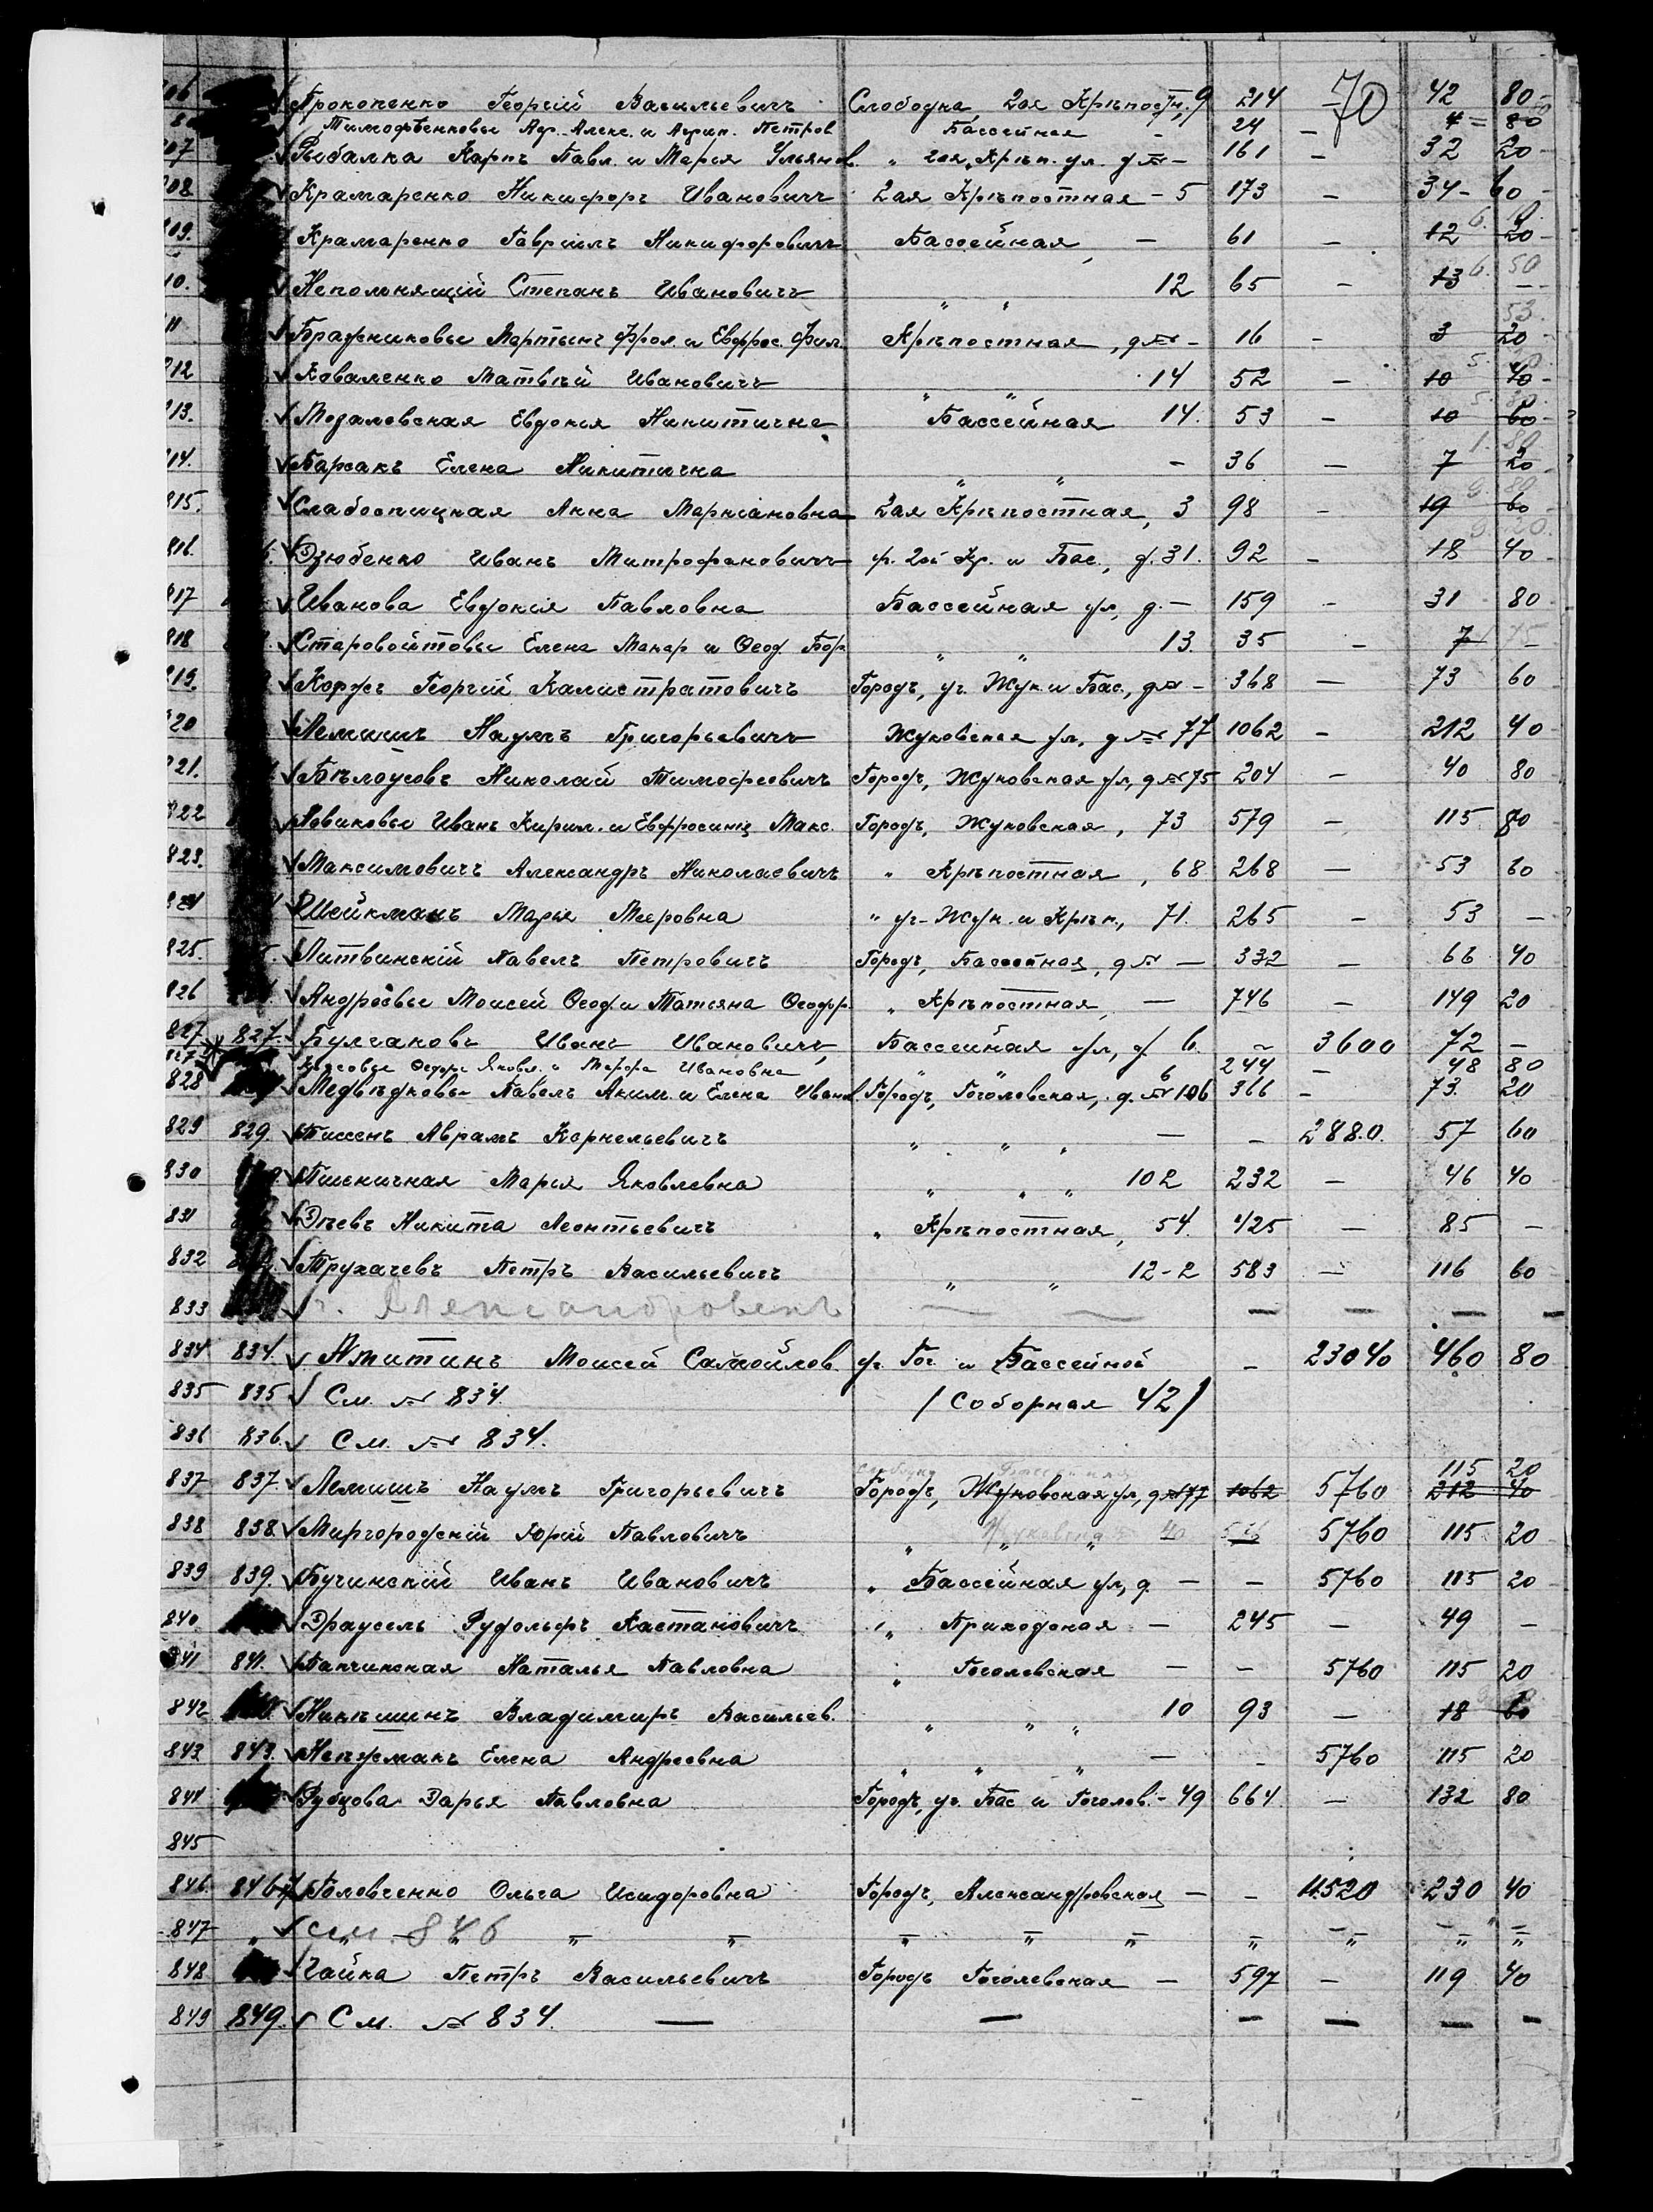 06 Прокопенко Георгій Васильевичъ Слободка 2ая Крѣпостн, 9 214 – 70 42 80
Тимофѣенковы Аф. Алекс. и Агрип. Петров Бассейная – 24 – 4 80
07 Рыбалка Карпъ Павл. и Марія Ульянов. " 2ая Крѣп. ул. д № – 161 – 32 20
08 Крамаренко Никифоръ Ивановичъ 2ая Крѣпостная – 5 173 – 34 60
09. Крамаренко Гавріилъ Никифоровичъ Бассейная – 61 – 12 20
10. Непомнящій Степанъ Ивановичъ " " 12 65 – 13 6. 50
11 Бражниковы Мартынъ Фрол. и Евфрос. Фил. Крѣпостная, д № – 16 – 3 20
812 Коваленко Матвѣй Ивановичъ " " 14 52 – 10 40
813. Мозалевская Евдокія Никитична Бассейная 14. 53 – 10 60
814. Барсакъ Елена Никитична " " – 36 – 7 20
815. Слабоспицкая Анна Маркіановна 2ая Крѣпостная, 3 98 – 19 60
816. Дзюбенко Иванъ Митрофановичъ у. 2ой Кр. и Бас., д. 31. 92 – 18 40
817 Иванова Евдокія Павловна Бассейная ул, д. – 159 – 31 80
818 Старовойтовы Елена Макар и Ѳеод Бор. " " 13. 35 – 7
819. Коржъ Георгій Калистратовичъ Городъ, уг. Жук. и Бас., д № – 368 – 73 60
820 Лемишъ Наумъ Григорьевичъ Жуковская ул, д № 77 1062 – 212 40
821. Бѣлоусовъ Николай Тимофеевичъ Городъ, Жуковская ул, д № 75 204 – 40 80
822 Новиковы Иванъ Кирил. и Евфросинія Макс. Городъ, Жуковская, 73 579 – 115 80
823. Максимовичъ Александръ Николаевичъ " Крѣпостная, 68 268 – 53 60
824 Шейкманъ Марья Мееровна " уг. Жук. и Крѣп., 71. 265 – 53 –
825. Литвинскій Павелъ Петровичъ Городъ, Бассейная, д № – 332 – 66 40
826 Андреевы Моисей Ѳеод. и Татьяна Ѳеодор. " Крѣпостная, – 746 – 149 20
827 827. Булгаковъ Иванъ Ивановичъ, Бассейная ул, д 6. – 3600 72 –
827 Ѳедоръ Яковл. и Ивановна " " 6 244 – 48 80
828 Медвѣдковы Павелъ Аким. и Елена Иванов. Городъ, Гоголевская, д. № 106 366 – 73. 20
829 829. Тиссенъ Абрамъ Корнельевичъ " " " – – 2880. 57 60
830 Пшеничная Марья Яковлевна " " " 102 232 – 46 40
831 Дѣевъ Никита Леонтьевичъ " Крѣпостная, 54. 425 – 85 –
832 Трухачевъ Петръ Васильевичъ " " 12-2 583 – 116 60
833 г. Александровскъ — — — — — —
834 834. Амитинъ Моисей Самойлов. уг. Гог. и Бассейной – 23040 460 80
835 835 См. № 834. (Соборная 42)
836 836. См. № 834.
115 20
837 837. Лемишъ Наумъ Григорьевичъ Городъ, Жуковская ул, д № 77 1062 5760 212 40
838 838. Миргородскій Юрій Павловичъ " " " 5760 115 20
839 839. Бучинскій Иванъ Ивановичъ " Бассейная ул, д – – 5760 115 20
840. Драусель Рудольфъ Кастановичъ " Приходская – 245 – 49 –
841 841. Папчинская Наталья Павловна " Гоголевская – – 5760 115 20
842 Никѣшинъ Владимиръ Васильев. " " " 10 93 – 18 60
843 843. Елена Андреевна " " " – – 5760 115 20
844 Рубцова Дарья Павловна Городъ, уг. Бас и Гоголев. – 49 664. – 132 80
845
846. 846. Головченко Ольга Исидоровна Городъ, Александровская – – 11520 230 40
847 " см. 846 " " " " " " " " "
848 Чайка Петръ Васильевичъ Городъ Гоголевская – 597 – 119 40
849 849. См. № 834. — — — — — —